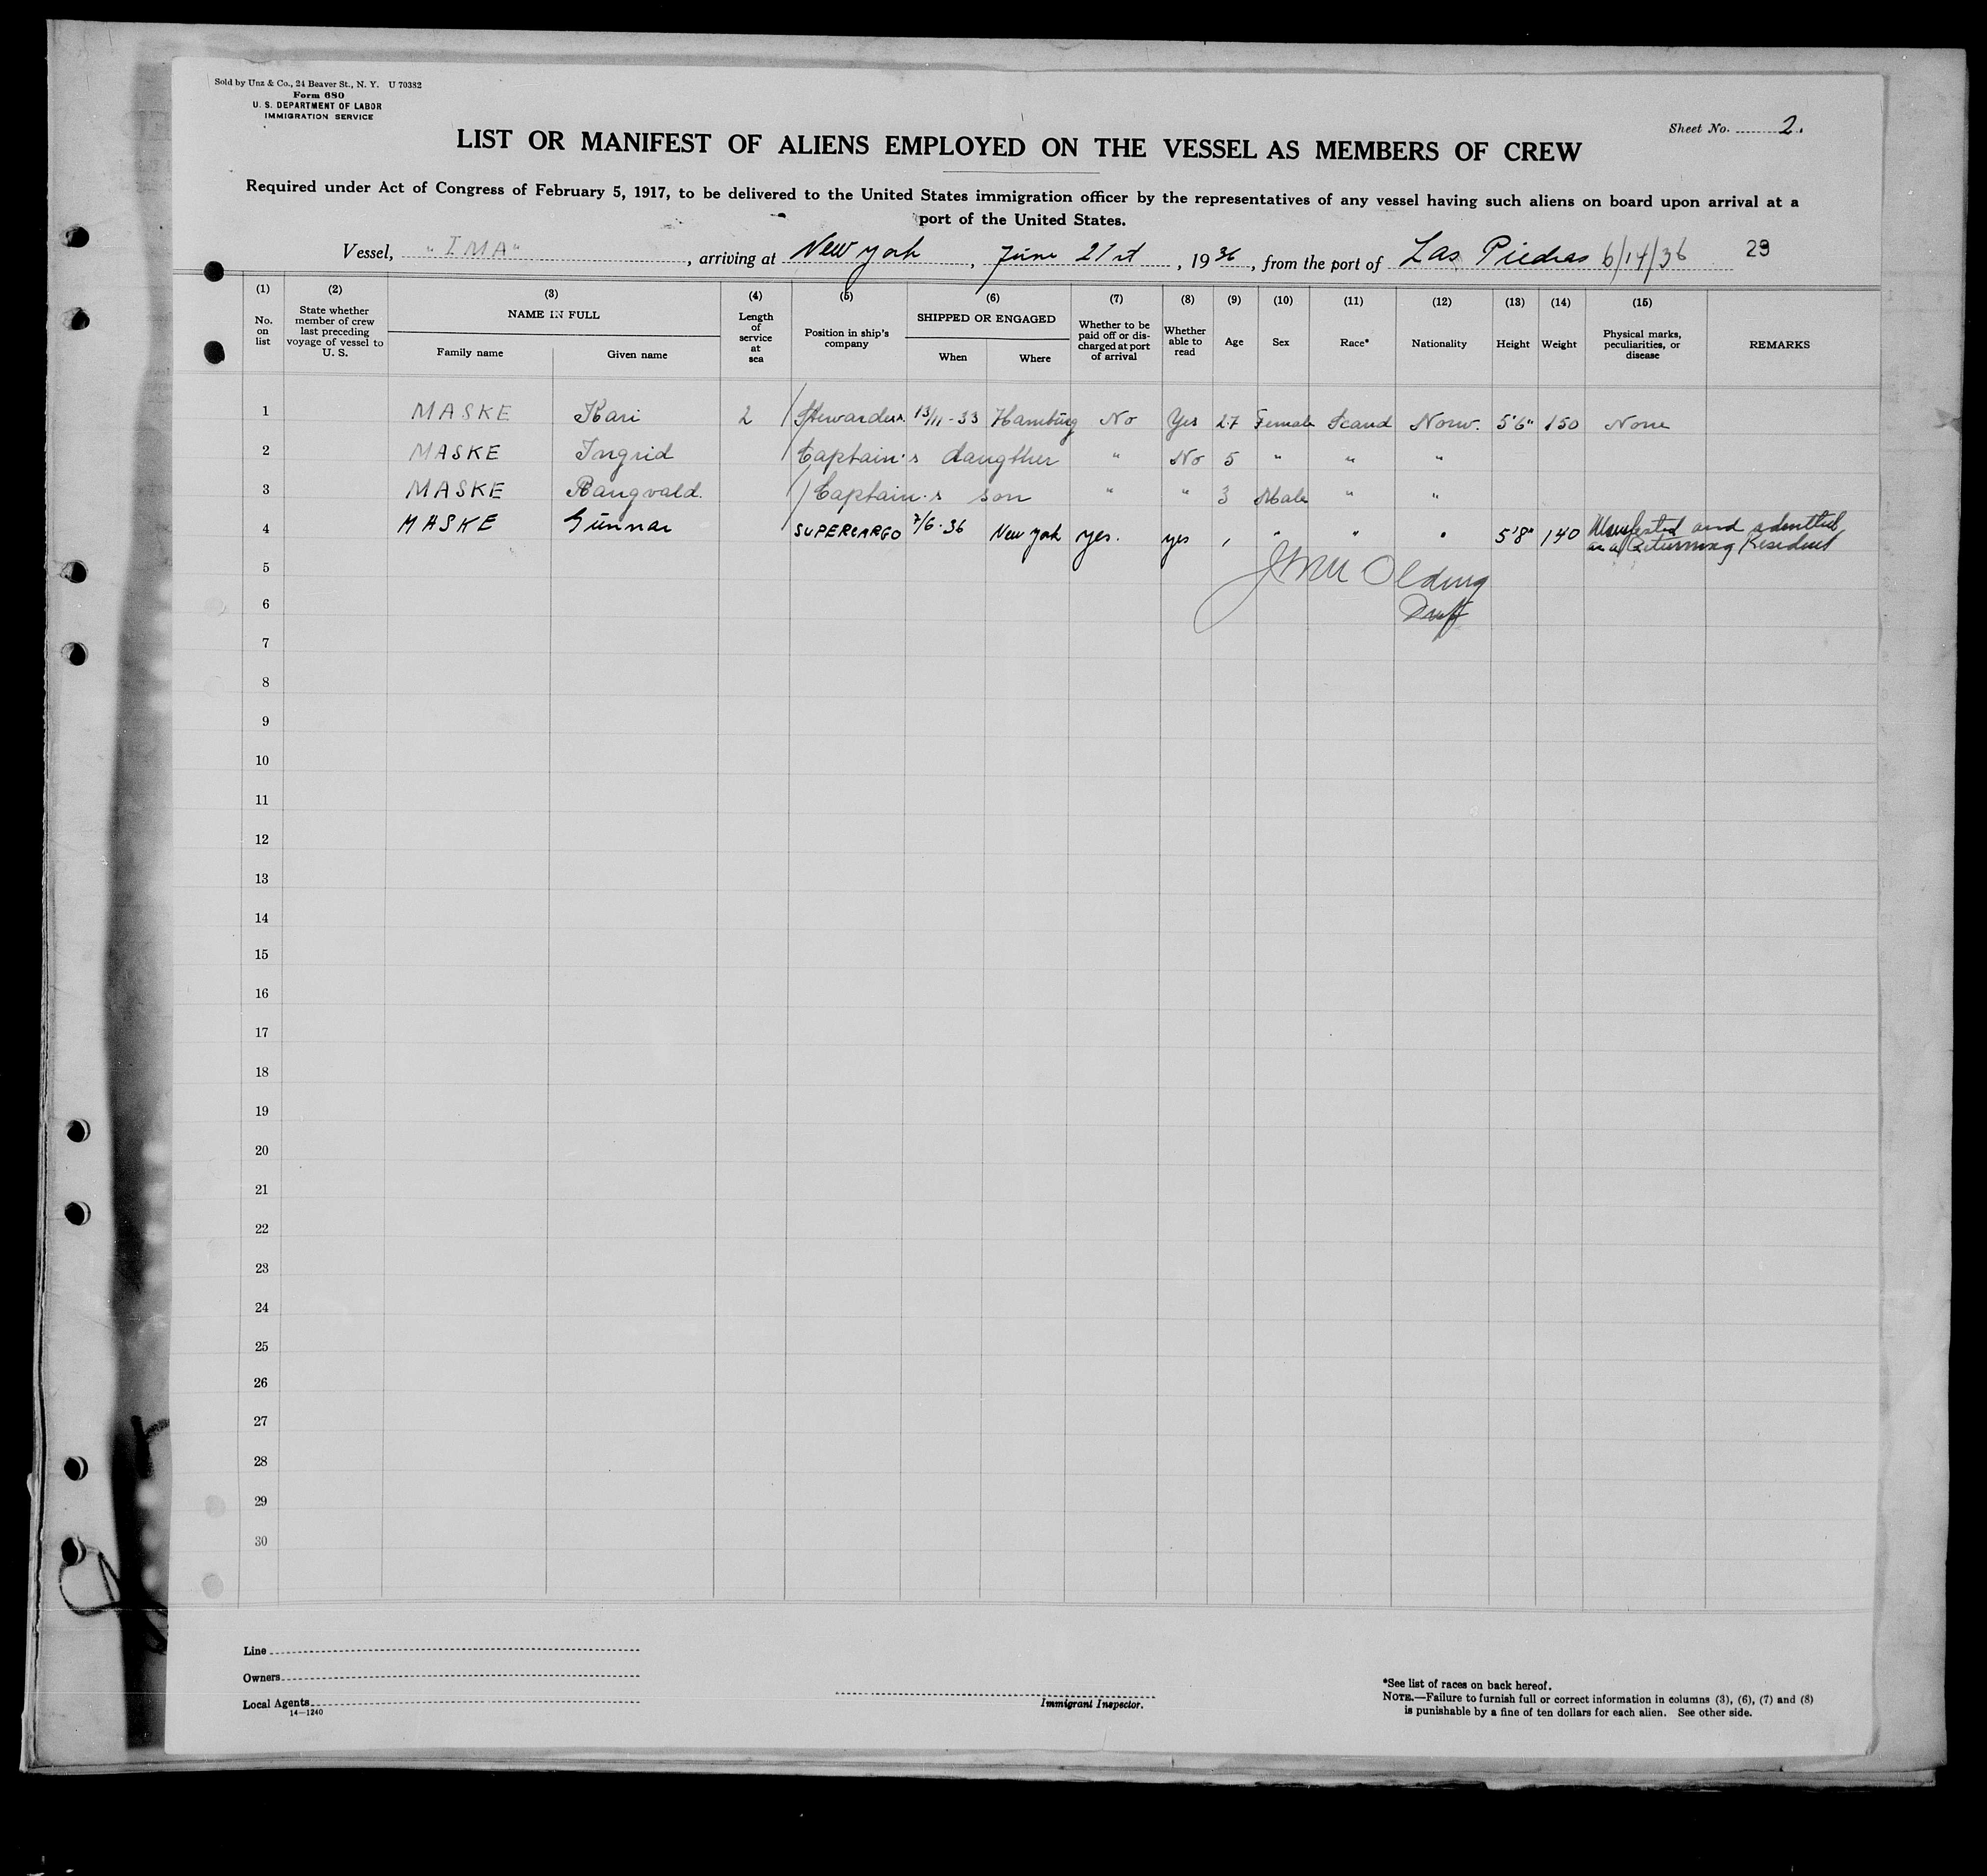 Sold by Unz & Co., 24 Beaver St., N. Y. U 70382
Form 680
U. S. DEPARTMENT OF LABOR
IMMIGRATION SERVICE
Sheet No. 2.
LIST OR MANIFEST OF ALIENS EMPLOYED ON THE VESSEL AS MEMBERS OF CREW
Required under Act of Congress of February 5, 1917, to be delivered to the United States immigration officer by the representatives of any vessel having such aliens on board upon arrival at a
port of the United States.
Vessel, "IMA", arriving at New York, June 21st, 1936, from the port of Las Piedras 6/14/36 29
(1) No. on list
(2) State whether member of crew last preceding voyage of vessel to U. S.
(3) NAME IN FULL Family name Given name
(4) Length of service at sea
(5) Position in ship's company
(6) SHIPPED OR ENGAGED When Where
(7) Whether to be paid off or discharged at port of arrival
(8) Whether able to read
(9) Age
(10) Sex
(11) Race*
(12) Nationality
(13) Height
(14) Weight
(15) Physical marks, peculiarities, or disease
REMARKS
1 MASKE Kari 2 Stewardess 13/11-33 Hamburg No Yes 27 Female Scand Norw. 5'6" 150 None
2 MASKE Ingrid Captain's daugther " No 5 " " "
3 MASKE Rangvald. Captain's son " " 3 Male " "
4 MASKE Gunnar SUPERCARGO 7/6-36 New York yes. yes " " " 5'8" 140 Manifested and admitted
as a Returning Resident
5
6
7
8
9
10
11
12
13
14
15
16
17
18
19
20
21
22
23
24
25
26
27
28
29
30
Line
Owners
Local Agents
14—1240
Immigrant Inspector.
*See list of races on back hereof.
NOTE.—Failure to furnish full or correct information in columns (3), (6), (7) and (8)
is punishable by a fine of ten dollars for each alien. See other side.